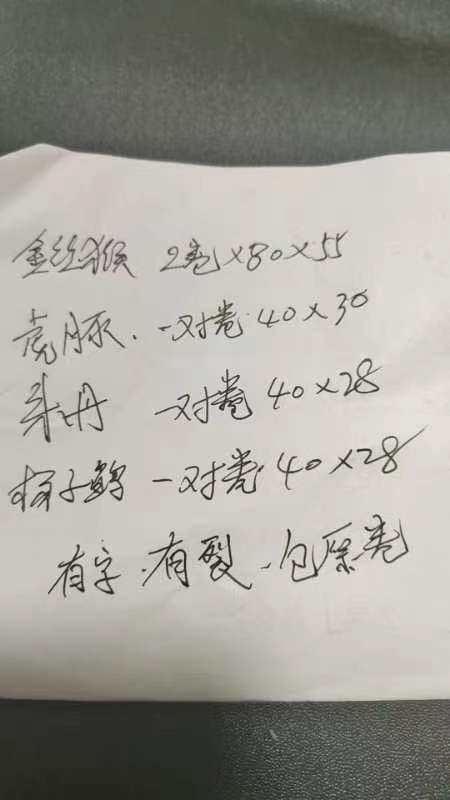 金丝猴 2卷×80×55
虎豚.一对卷.40×30
朱丹 一对卷 40×28
杨子鹤 一对卷.40×28
有字.有裂.包原卷